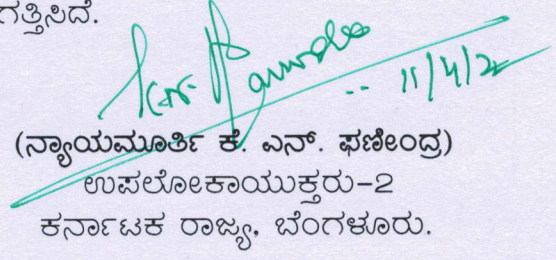 ಗತ್ತಿಸಿದೆ.
11/4/22
(ನ್ಯಾಯಮೂರ್ತಿ ಕೆ. ಎನ್. ಫಣೀಂದ್ರ)
ಉಪಲೋಕಾಯುಕ್ತರು-2
ಕರ್ನಾಟಕ ರಾಜ್ಯ, ಬೆಂಗಳೂರು.